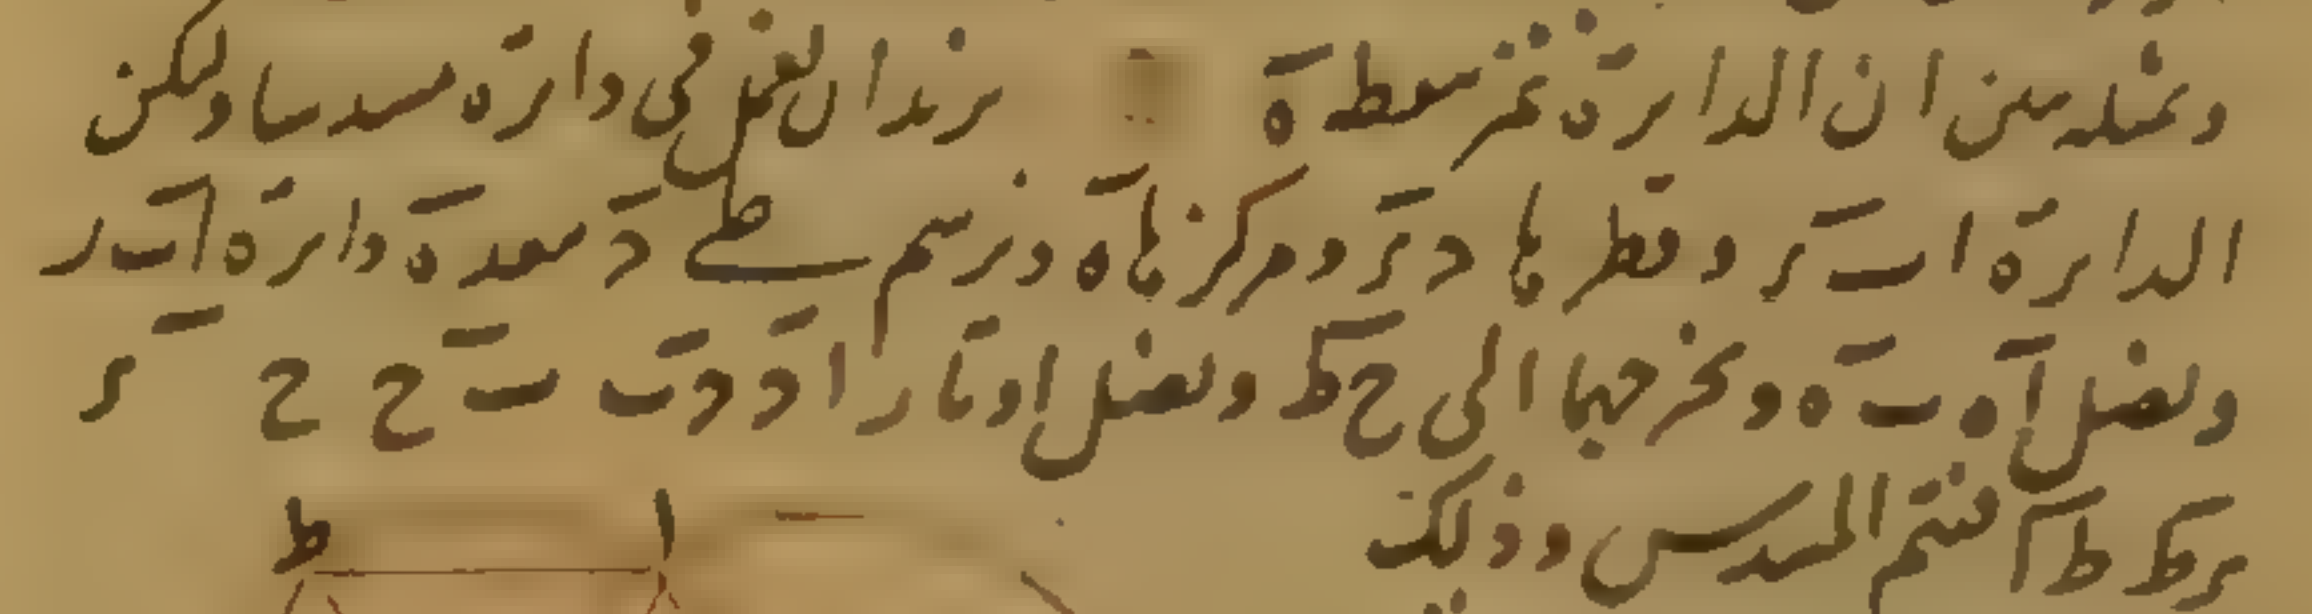 وبمثله نبين ان الدائرة تمر بنقطة ه نريد ان نعمل في دائرة مسدسا ولكن
الدائرة ا ب ر وقطرها د ر ومركزها ه ونرسم على د ببعد ه دائرة ا ه ب
ونصل ا ه ب ه ونخرجهما الى ح ط ونصل اوتار ا د د ب ب ح ح ر
ر ط ط ا فيتم المسدس وذلك
ا ط